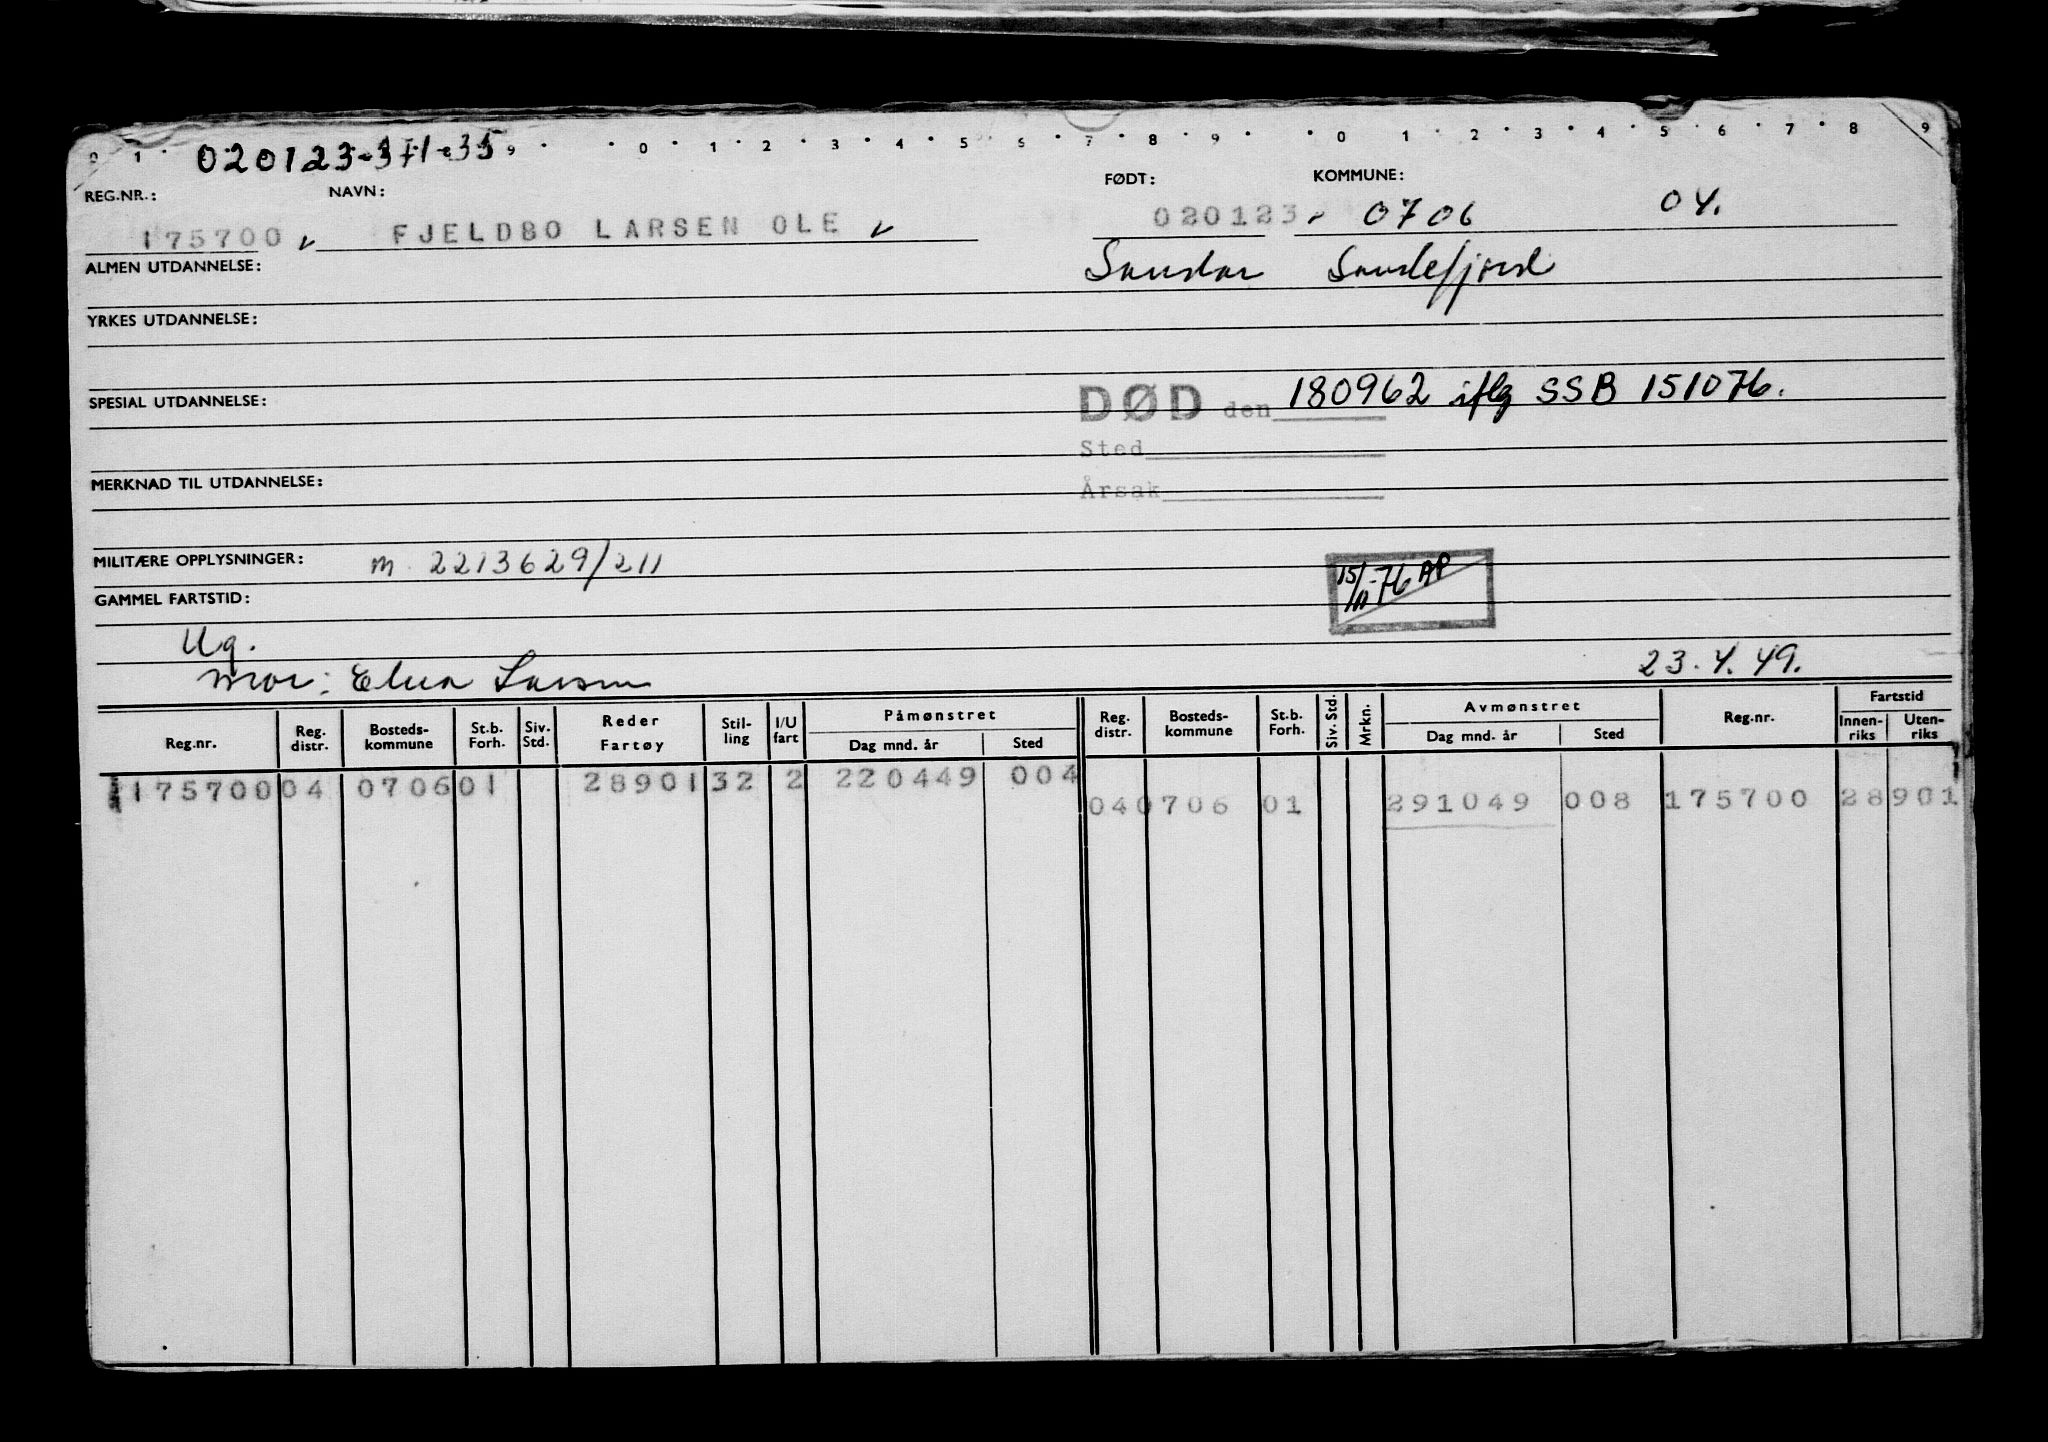 0 1 9 0 1 2 3 4 5 6 7 8 9 0 1 2 3 4 5 6 7 8 9
020123-371-35
REG.NR.: NAVN: FØDT: KOMMUNE:
175700 FJELDBO LARSEN OLE 020123 0706 04.
ALMEN UTDANNELSE: Sandar Sandefjord
YRKES UTDANNELSE:
SPESIAL UTDANNELSE: DØD den 180962 iflg SSB 151076.
Sted
MERKNAD TIL UTDANNELSE: Årsak
MILITÆRE OPPLYSNINGER: m 2213629/211
15/11-76 AP
GAMMEL FARTSTID:
Ug.
Mor: Elna Larsen 23.4.49.
Reg.nr. Reg. distr. Bosteds-kommune St.b. Forh. Siv. Std. Reder Fartøy Stil-ling I/U fart Påmønstret Dag mnd. år Sted Reg. distr. Bosteds-kommune St.b. Forh. Siv. Std. Mrkn. Avmønstret Dag mnd. år Sted Reg.nr. Fartstid Innen-riks Uten-riks
175700 04 0706 01 28901 32 2 220449 004
04 0706 01 291049 008 175700 28901